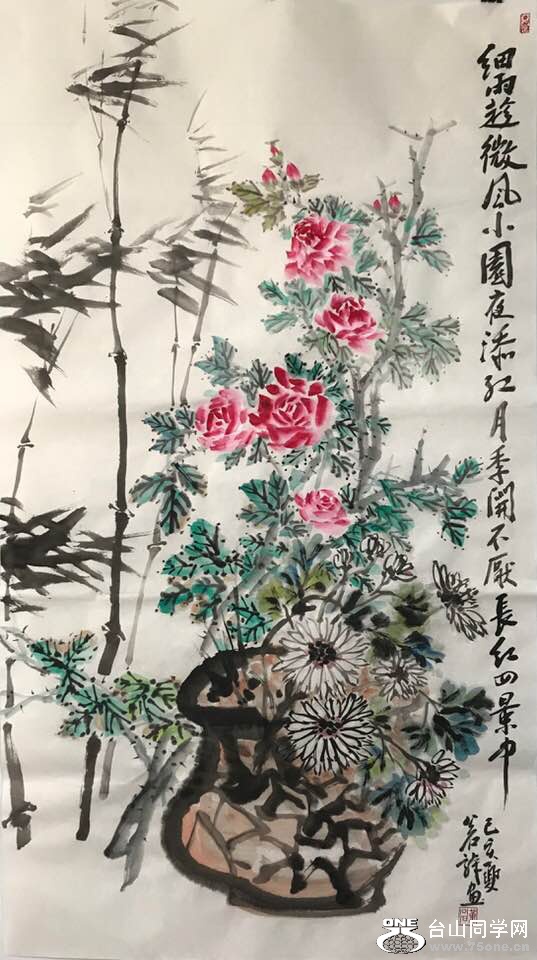 细雨趁微风小園夜添红月季開不厭長红四景中
己亥夏
若詳画
ONE
台山同学网
www.75one.cn